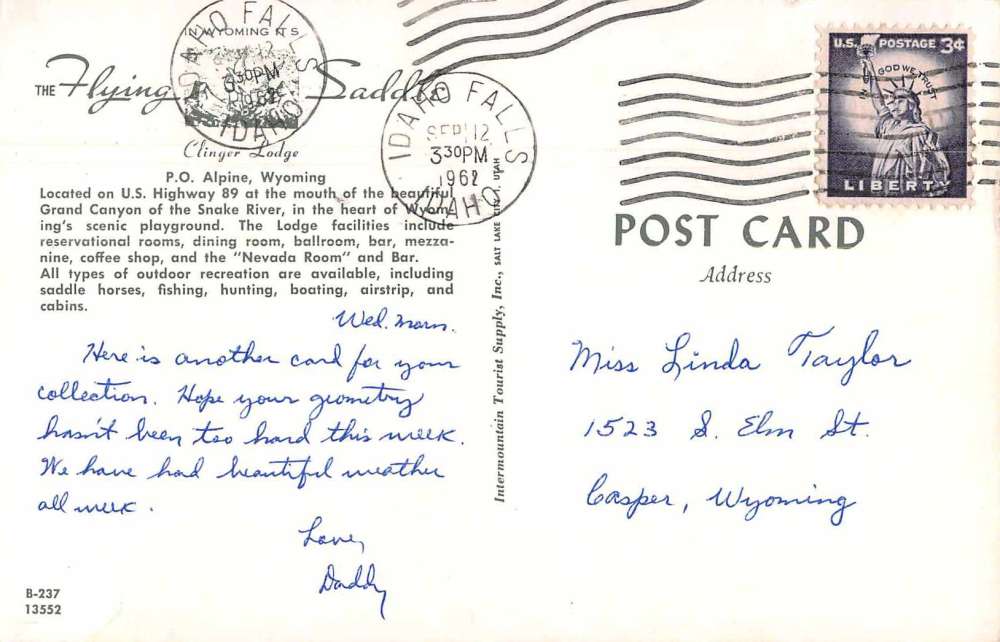 IN WYOMING ITS
THE Flying Saddle
Clinger Lodge
P.O. Alpine, Wyoming
Located on U.S. Highway 89 at the mouth of the beautiful
Grand Canyon of the Snake River, in the heart of Wyom-
ing's scenic playground. The Lodge facilities include
reservational rooms, dining room, ballroom, bar, mezza-
nine, coffee shop, and the "Nevada Room" and Bar.
All types of outdoor recreation are available, including
saddle horses, fishing, hunting, boating, airstrip, and
cabins.
IDAHO FALLS
330PM
1962
IDAHO
IDAHO FALLS
SEP 12
330PM
1962
IDAHO
Wed. morn.
Here is another card for your
collection. Hope your geometry
hasn't been too hard this week.
We have had beautiful weather
all week.
Love,
Daddy
B-237
13552
Intermountain Tourist Supply, Inc., SALT LAKE CITY 1, UTAH
U.S. POSTAGE 3¢
IN GOD WE TRUST
LIBERTY
POST CARD
Address
Miss Linda Taylor
1523 S. Elm St.
Casper, Wyoming